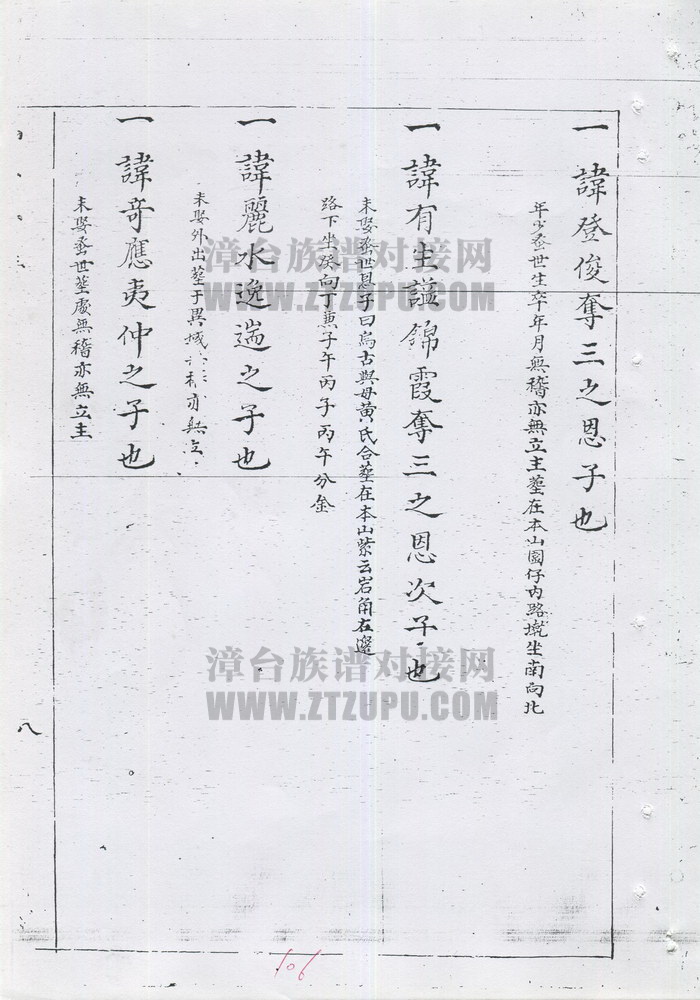 一諱登俊奪三之恩子也
年少蚤世生卒年月無稽亦無立主塟在本山園仔内路墘坐南向北
一諱有生謚錦霞奪三之恩次子也
未娶蚤世恩子曰烏古與母黄氏合塟在本山紫云岩角左邊
路下坐癸向丁兼子午丙子丙午分金
一諱麗水逸遄之子也
未娶外出塟于異域 亦無立
一諱奇應夷仲之子也
未娶蚤世塟處無稽亦無立主
八
漳台族谱对接网
WWW.ZTZUPU.COM
漳台族谱对接网
WWW.ZTZUPU.COM
106